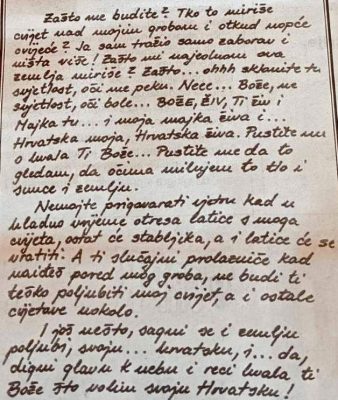 Zašto me budite? Tko to miriše
cvijet nad mojim grobom i otkud uopće
cvijeće? Ja sam tražio samo zaborav i
ništa više! Zašto mi najednom ova
zemlja miriše? Zašto... ohhh sklonite tu
svjetlost, oči me peku. Neee... Bože, ne
svjetlost, oči bole... BOŽE, ŽIV, Ti živ i
Majka tu... i moja majka živa i...
Hrvatska moja, Hrvatska živa. Pustite me
o hvala Ti Bože... Pustite me da to
gledam, da očima milujem to tlo i
sunce i zemlju.
Nemojte prigovarati vjetru kad u
hladno vrijeme otresa latice s moga
cvijeta, ostat će stabljika, a i latice će se
vratiti. A ti slučajni prolazniče kad
naiđeš pored mog groba, ne budi ti
teško poljubiti moj cvijet, a i ostale
cvjetove uokolo.
I još nešto, sagni se i zemlju
poljubi, svoju... hrvatsku, i... da,
digni glavu k nebu i reci hvala, ti
Bože što volim svoju Hrvatsku!